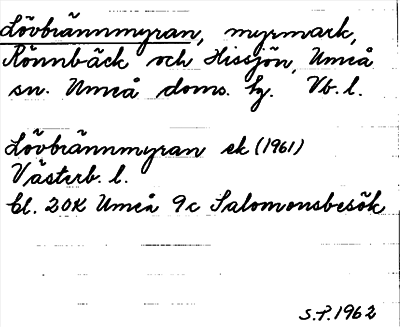 Lövbrännmyran, myrmark,
Rönnbäck och Hissjön, Umeå
sn. Umeå doms. hg. Vb. l.
Lövbrännmyran ek (1961)
Västerb. l.
Bl. 20K Umeå 9c Salomonsbesök
S.P. 1962